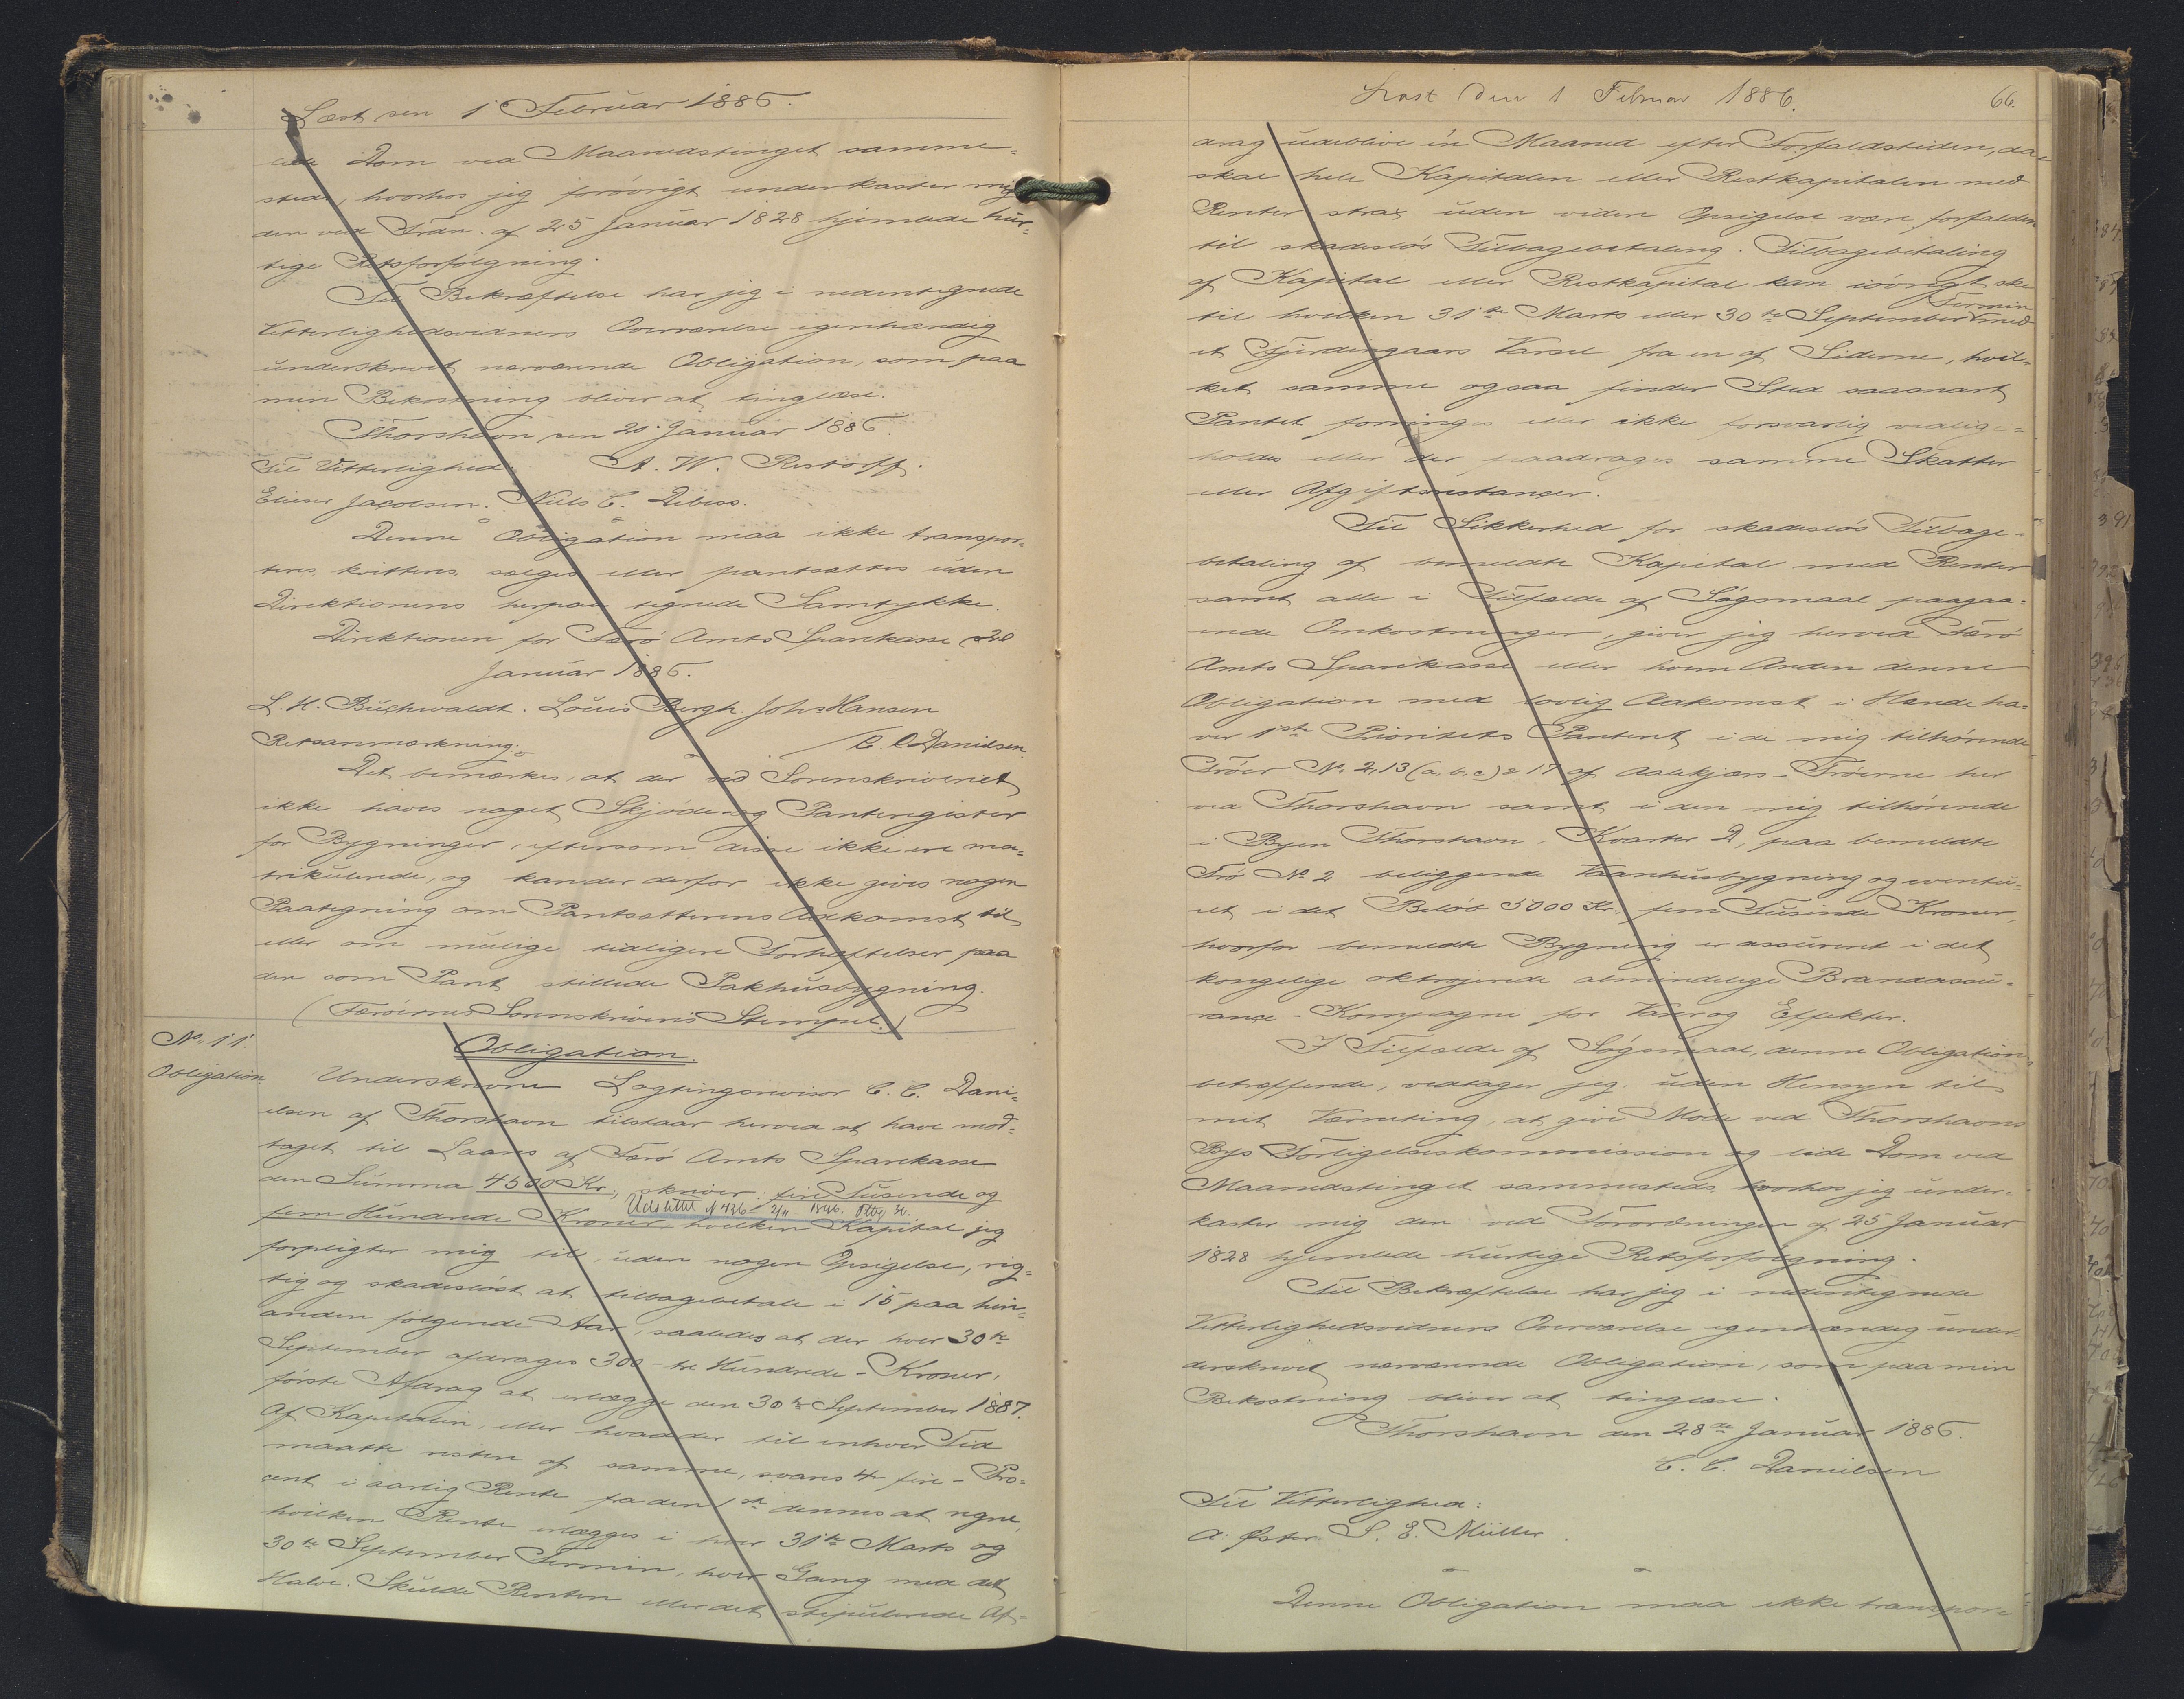 Læst den 1 Februar 1886.
lide Dom ved Maanedstinget samme=
steds, hvorhos jeg forøvrigt underkaster mig
den ved Frdn. af 25 Januar 1828 hjemlede hur=
tige Retsforfølgning.
Til Bekræftelse har jeg i nedentegnede
Vitterlighedsvidners Overværelse egenhændig
underskrevet nærværende Obligation, som paa
min Bekostning bliver at tinglæse.
Thorshavn den 20. Januar 1886.
Til Vitterlighed: A. W. Restorff.
Elieser Jacobsen. Niels C. Debess.
Denne Obligation maa ikke transpor=
teres, kvitteres, sælges eller pantsættes uden
Direktionens herpaa tegnede Samtykke.
Direktionen for Færø Amts Sparekasse 20
Januar 1886.
L. H. Buchwaldt. Louis Bergh. Johs Hansen
Retsanmærkning: C. C. Danielsen.
Det bemærkes, at der ved Sorenskriveriet
ikke haves noget Skjøde og Panteregister
for Bygninger, eftersom disse ikke ere ma=
trikulerede, og kan der derfor ikke gives nogen
Paategning om Pantsætterens Adkomst til
eller om mulige tidligere Forhæftelser paa
den som Pant stillede Pakhusbygning.
(Færøernes Sorenskriveris Stempel.)
No. 11.
Obligation
Obligation.
Underskrevne Lagtingsrevisor C. C. Dani=
elsen af Thorshavn tilstaar herved at have mod=
taget til Laans af Færø Amts Sparekasse
den Summa 4500 Kr., skriver fire Tusende og
Udslettet N 436 2/11 1896.
fem Hundrede Kroner hvilken Kapital jeg
forpligter mig til, uden nogen Opsigelse, rig=
tig og skadesløst at tilbagebetale i 15 paa hin=
anden følgende Aar, saaledes at der hver 30te
September afdrages 300 - tre Hundrede - Kroner,
første Afdrag at erlægge den 30te September 1887.
Af Kapitalen, eller hvad der til enhver Tid
maatte restere af samme, svares 4 fire - Pro=
cent i aarlig Rente fra den 1ste dennes at regne,
hvilken Rente erlægges i hver 31te Marts og
30te September Termin, hver Gang med det
Halve. Skulde Renten eller det stipulerede Af=
Læst den 1 Februar 1886.
66.
drag udeblive én Maaned efter Forfaldstiden, da
skal hele Kapitalen eller Restkapitalen med
Renter strax uden videre Opsigelse være forfalden
til skadesløs Tilbagebetaling. Tilbagebetaling
af Kapital eller Restkapital kan iøvrigt ske
Termin
til hvilken 31te Marts eller 30te September med
et Fjerdingaars Varsel fra en af Siderne, hvil=
ket samme ogsaa finder Sted saasnart
Pantet forringes eller ikke forsvarlig vedlige=
holdes eller der paadrages samme Skatter
eller Afgiftsrestancer.
Til Sikkerhed for skadesløs Tilbage=
betaling af bemeldte Kapital med Renter
samt alle i Tilfælde af Søgsmaal paagaa=
ende Omkostninger, giver jeg herved Færø
Amts Sparekasse eller hvem Anden denne
Obligation med lovlig Adkomst i Hænde ha=
ver 1ste Prioritets Panteret i de mig tilhørende
Trøer No. 2, 13 (a, b, c) & 17 af Aalekjærs-Trøerne her
ved Thorshavn samt i den mig tilhørende
i Byen Thorshavn, Kvarter D, paa bemeldte
Trø No 2 beliggende Vaanhusbygning og eventu=
elt i det Beløb 5000 Kr., fem Tusinde Kroner,
hvorfor bemeldte Bygning er assureret i det
kongelige oktrojerede almindelige Brandassu=
rance-Kompagni for Varer og Effekter.
I Tilfælde af Søgsmaal, denne Obligation
betræffende, vedtager jeg, uden Hensyn til
mit Værneting, at give Møde ved Thorshavns
Bys Forligelseskommission og lide Dom ved
Maanedstinget sammesteds, hvorhos jeg under=
kaster mig den ved Forordningen af 25 Januar
1828 hjemlede hurtige Retsforfølgning.
Til Bekræftelse har jeg i nedentegnede
Vitterlighedsvidners Overværelse egenhændig under=
derskrevet nærværende Obligation, som paa min
Bekostning bliver at tinglæse.
Thorshavn den 28de Januar 1886.
C. C. Danielsen
Til Vitterlighed:
A. Øster. S. E. Müller.
Denne Obligation maa ikke transpor=